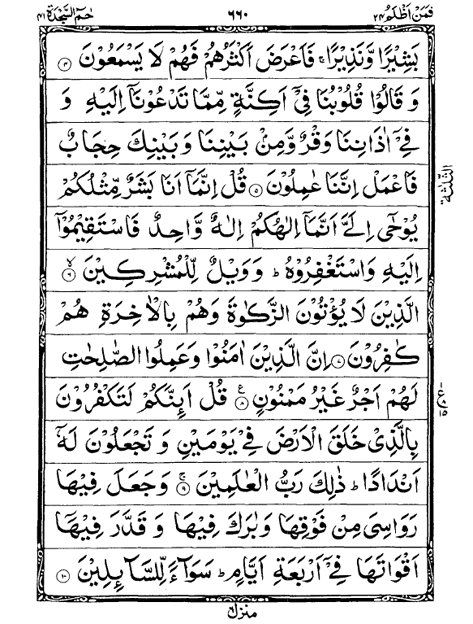 فمن اظلم ٢٤ ٦٦٠ حٰمٓ السجدة ٤١
بَشِيْرًا وَّنَذِيْرًا ۚ فَاَعْرَضَ اَكْثَرُهُمْ فَهُمْ لَا يَسْمَعُوْنَ ۝٤
وَ قَالُوْا قُلُوْبُنَا فِيْۤ اَكِنَّةٍ مِّمَّا تَدْعُوْنَاۤ اِلَيْهِ وَ
فِيْۤ اٰذَانِنَا وَقْرٌ وَّمِنْۢ بَيْنِنَا وَ بَيْنِكَ حِجَابٌ
فَاعْمَلْ اِنَّنَا عٰمِلُوْنَ ۝٥ قُلْ اِنَّمَاۤ اَنَا بَشَرٌ مِّثْلُكُمْ
يُوْحٰۤى اِلَيَّ اَنَّمَاۤ اِلٰهُكُمْ اِلٰهٌ وَّاحِدٌ فَاسْتَقِيْمُوْۤا
اِلَيْهِ وَاسْتَغْفِرُوْهُ ؕ وَوَيْلٌ لِّلْمُشْرِكِيْنَ ۝٦ۙ
الَّذِيْنَ لَا يُؤْتُوْنَ الزَّكٰوةَ وَهُمْ بِالْاٰخِرَةِ هُمْ
كٰفِرُوْنَ ۝٧ اِنَّ الَّذِيْنَ اٰمَنُوْا وَعَمِلُوا الصّٰلِحٰتِ
لَهُمْ اَجْرٌ غَيْرُ مَمْنُوْنٍ ۝٨ قُلْ اَىِٕنَّكُمْ لَتَكْفُرُوْنَ
بِالَّذِيْ خَلَقَ الْاَرْضَ فِيْ يَوْمَيْنِ وَ تَجْعَلُوْنَ لَهٗۤ
اَنْدَادًا ؕ ذٰلِكَ رَبُّ الْعٰلَمِيْنَ ۝٩ۚ وَجَعَلَ فِيْهَا
رَوَاسِيَ مِنْ فَوْقِهَا وَبٰرَكَ فِيْهَا وَ قَدَّرَ فِيْهَاۤ
اَقْوَاتَهَا فِيْۤ اَرْبَعَةِ اَيَّامٍ ؕ سَوَآءً لِّلسَّآىِٕلِيْنَ ۝١٠
منزل
الثلثة